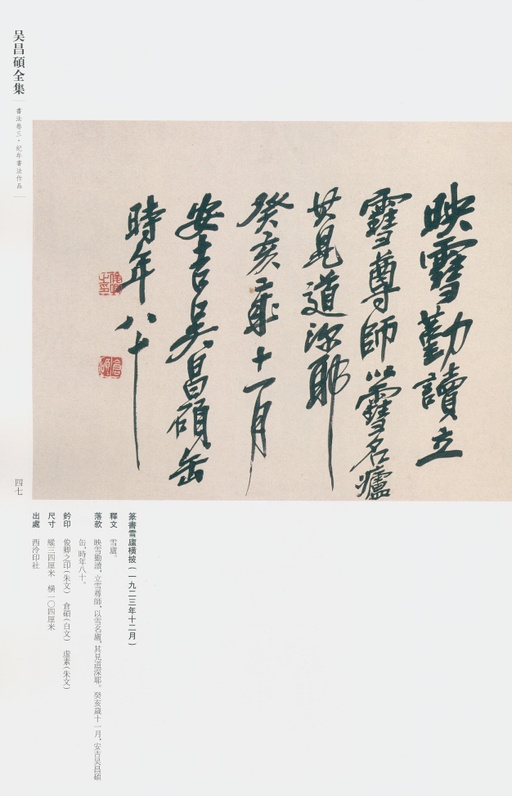 吴昌碩全集
書法卷三·紀年書法作品
映雪勤讀立
雪尊師以雪名廬
其見道深耶
癸亥歲十一月
安吉吴昌碩缶
時年八十
四七
篆書雪廬横披（一九二三年十二月）
釋文　雪廬。
落款　映雪勤讀，立雪尊師，以雪名廬，其見道深耶。癸亥歲十一月，安吉吴昌碩
缶，時年八十。
鈐印　俊卿之印（朱文）　倉碩（白文）　虚素（朱文）
尺寸　縱三四厘米　横一〇四厘米
出處　西泠印社